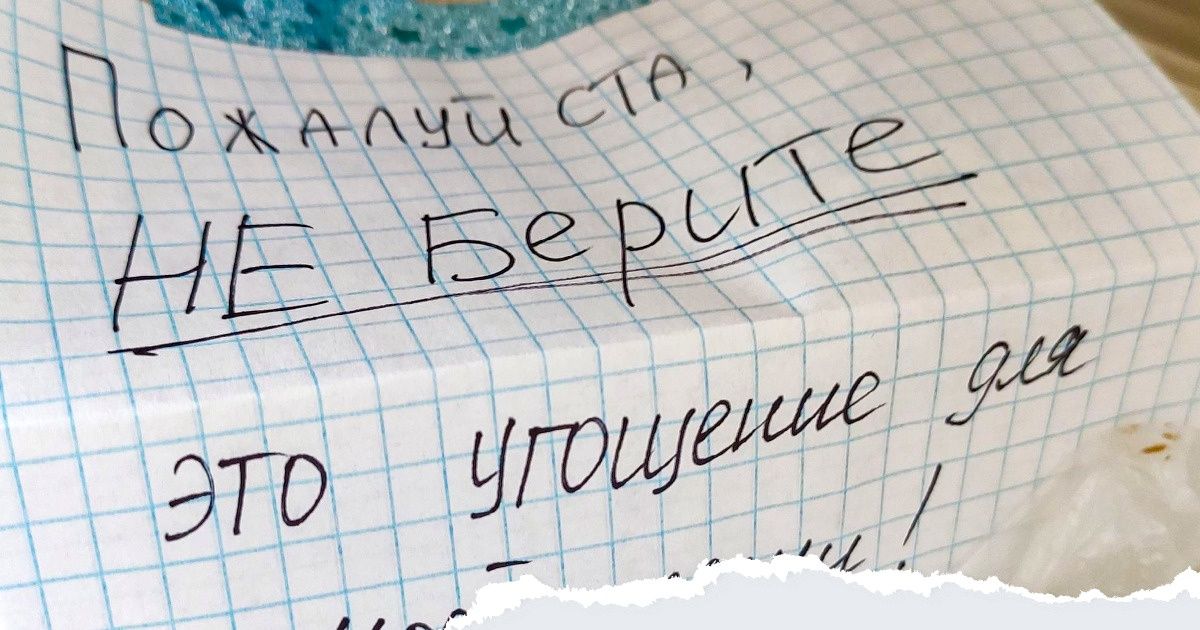 Пожалуйста,
НЕ Берите
это угощение для